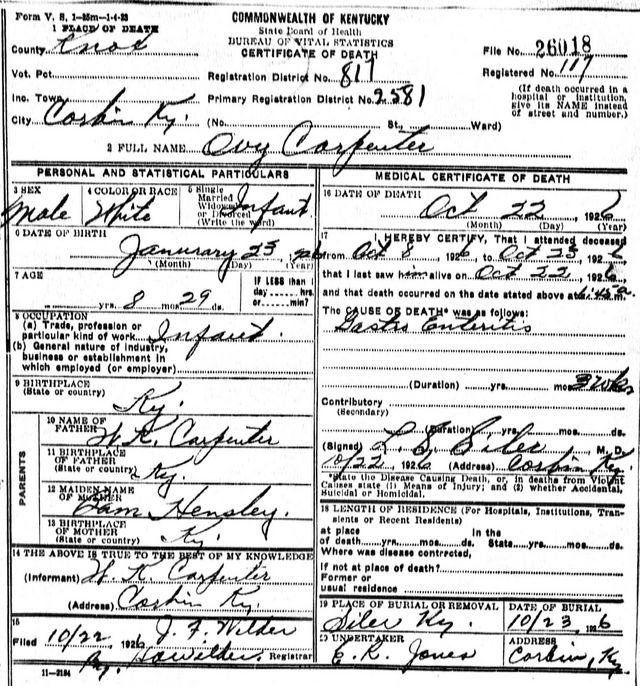 Form V. S. 1-25m-1-4-23
1 PLACE OF DEATH
COMMONWEALTH OF KENTUCKY
State Board of Health
BUREAU OF VITAL STATISTICS
CERTIFICATE OF DEATH
County Knox
File No. 26018
Vot. Pct.
Registration District No. 817
Registered No. 117
Inc. Town
Primary Registration District No. 2581
(If death occurred in a
hospital or institution,
give its NAME instead
of street and number.)
City Corbin Ky. (No. St., Ward)
2 FULL NAME Ovy Carpenter
PERSONAL AND STATISTICAL PARTICULARS
3 SEX Male
4 COLOR OR RACE White
5 Single
Married
Widowed
or Divorced
(Write the word) Infant
6 DATE OF BIRTH Janurary 23, 1926
(Month) (Day) (Year)
7 AGE
yrs. 8 mos. 29 ds.
IF LESS than 1
day hrs.
or min?
8 OCCUPATION
(a) Trade, profession or
particular kind of work Infant.
(b) General nature of industry,
business or establishment in
which employed (or employer)
9 BIRTHPLACE
(State or country) Ky.
PARENTS
10 NAME OF
FATHER W. K. Carpenter
11 BIRTHPLACE
OF FATHER
(State or country) Ky.
12 MAIDEN NAME
OF MOTHER Pam Hensley.
13 BIRTHPLACE
OF MOTHER
(State or country) Ky.
14 THE ABOVE IS TRUE TO THE BEST OF MY KNOWLEDGE
(Informant) W. K. Carpenter
(Address) Corbin Ky.
15
Filed 10/22, 1926 J. F. Wilder
By. Registrar
11-3184
MEDICAL CERTIFICATE OF DEATH
16 DATE OF DEATH
Oct 22, 1926
(Month) (Day) (Year)
17 I HEREBY CERTIFY, That I attended deceased
from Oct 8, 1926, to Oct 23, 1926
that I last saw him alive on Oct 22, 1926,
and that death occurred on the date stated above at 1:45 a m.
The CAUSE OF DEATH* was as follows:
Gastro Enteritis
(Duration) yrs. mos. 3 wks
Contributory
(Secondary)
(Duration) yrs. mos. ds.
(Signed) L. S. Siler M. D.
10/22, 1926 (Address) Corbin Ky.
*State the Disease Causing Death, or, in deaths from Violent
Causes state (1) Means of Injury; and (2) whether Accidental,
Suicidal or Homicidal.
18 LENGTH OF RESIDENCE (For Hospitals, Institutions, Tran-
sients or Recent Residents)
at place
of death yrs. mos. ds.
In the
State yrs. mos. ds.
Where was disease contrected,
If not at place of death?
Former or
usual residence
19 PLACE OF BURIAL OR REMOVAL
Siler Ky.
DATE OF BURIAL
10/23, 1926
20 UNDERTAKER
E. R. Jones
ADDRESS
Corbin, Ky.